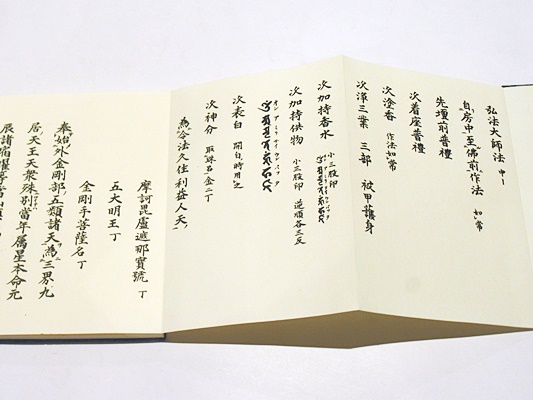 弘法大師法 中一
自房中至佛前作法 如常
先壇前普禮
次着座普禮
次塗香 作法如常
次淨三業 三部 被甲護身
次加持香水 小三股印
次加持供物 小三股印 逆順各三反
次表白 開白時用之
次神介 取珠呂金二丁
為令法久住利益人天
摩訶毘盧遮那寶號 丁
五大明王 丁
金剛手菩薩名 丁
奉始外金剛部五類諸天為三界九
居天王天衆殊別當年屬星本命元
辰諸宿曜